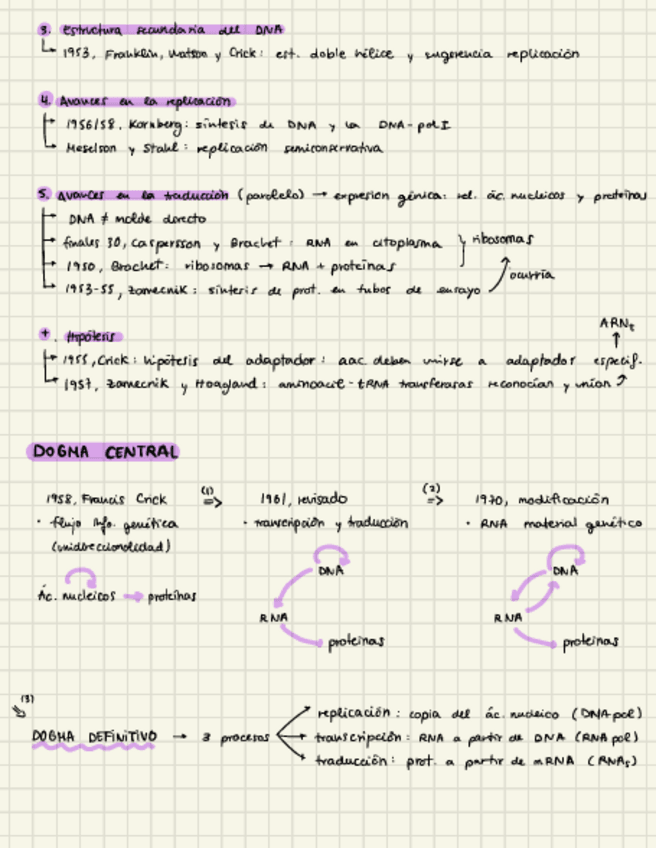 3. estructura secundaria del DNA
1953, Franklin, Watson y Crick: est. doble hélice y sugerencia replicación
4. Avances en la replicación
1956/58, Kornberg: síntesis de DNA y la DNA-pol I
Meselson y Stahl: replicación semiconservativa
5. Avances en la traducción (paralelo) → expresión génica: rel. ác. nucleicos y proteínas
DNA ≠ molde directo
finales 30, Caspersson y Brachet: RNA en citoplasma } ribosomas
1950, Brachet: ribosomas → RNA + proteínas
ocurría
1953-55, Zamecnik: síntesis de prot. en tubos de ensayo
+. Hipótesis
ARNt
1955, Crick: hipótesis del adaptador: aac deben unirse a adaptador específ.
1957, Zamecnik y Hoagland: aminoacil-tRNA transferasas reconocían y unían
DOGMA CENTRAL
1958, Francis Crick (1) ⇒ 1961, revisado (2) ⇒ 1970, modificación
• flujo info. genética • transcripción y traducción • RNA material genético
(unidireccionalidad)
DNA DNA
Ác. nucleicos → proteínas
RNA RNA
proteínas proteínas
(3)
replicación: copia del ác. nucleico (DNApol)
DOGMA DEFINITIVO → 3 procesos transcripción: RNA a partir de DNA (RNApol)
traducción: prot. a partir de mRNA (RNAs)